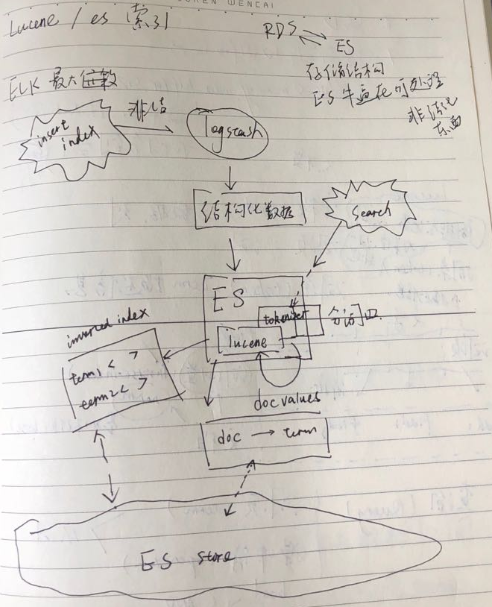 Lucene / es 索引
RDS ⇌ ES
存储结构
ES 牛逼在可处理
非结构化
东西
ELK 最大位数
insert index
非结
Logstash
结构化数据
search
ES
tokenizer
分词
lucene
inverted index
term1 < >
term2 < >
doc values
doc → term
ES store